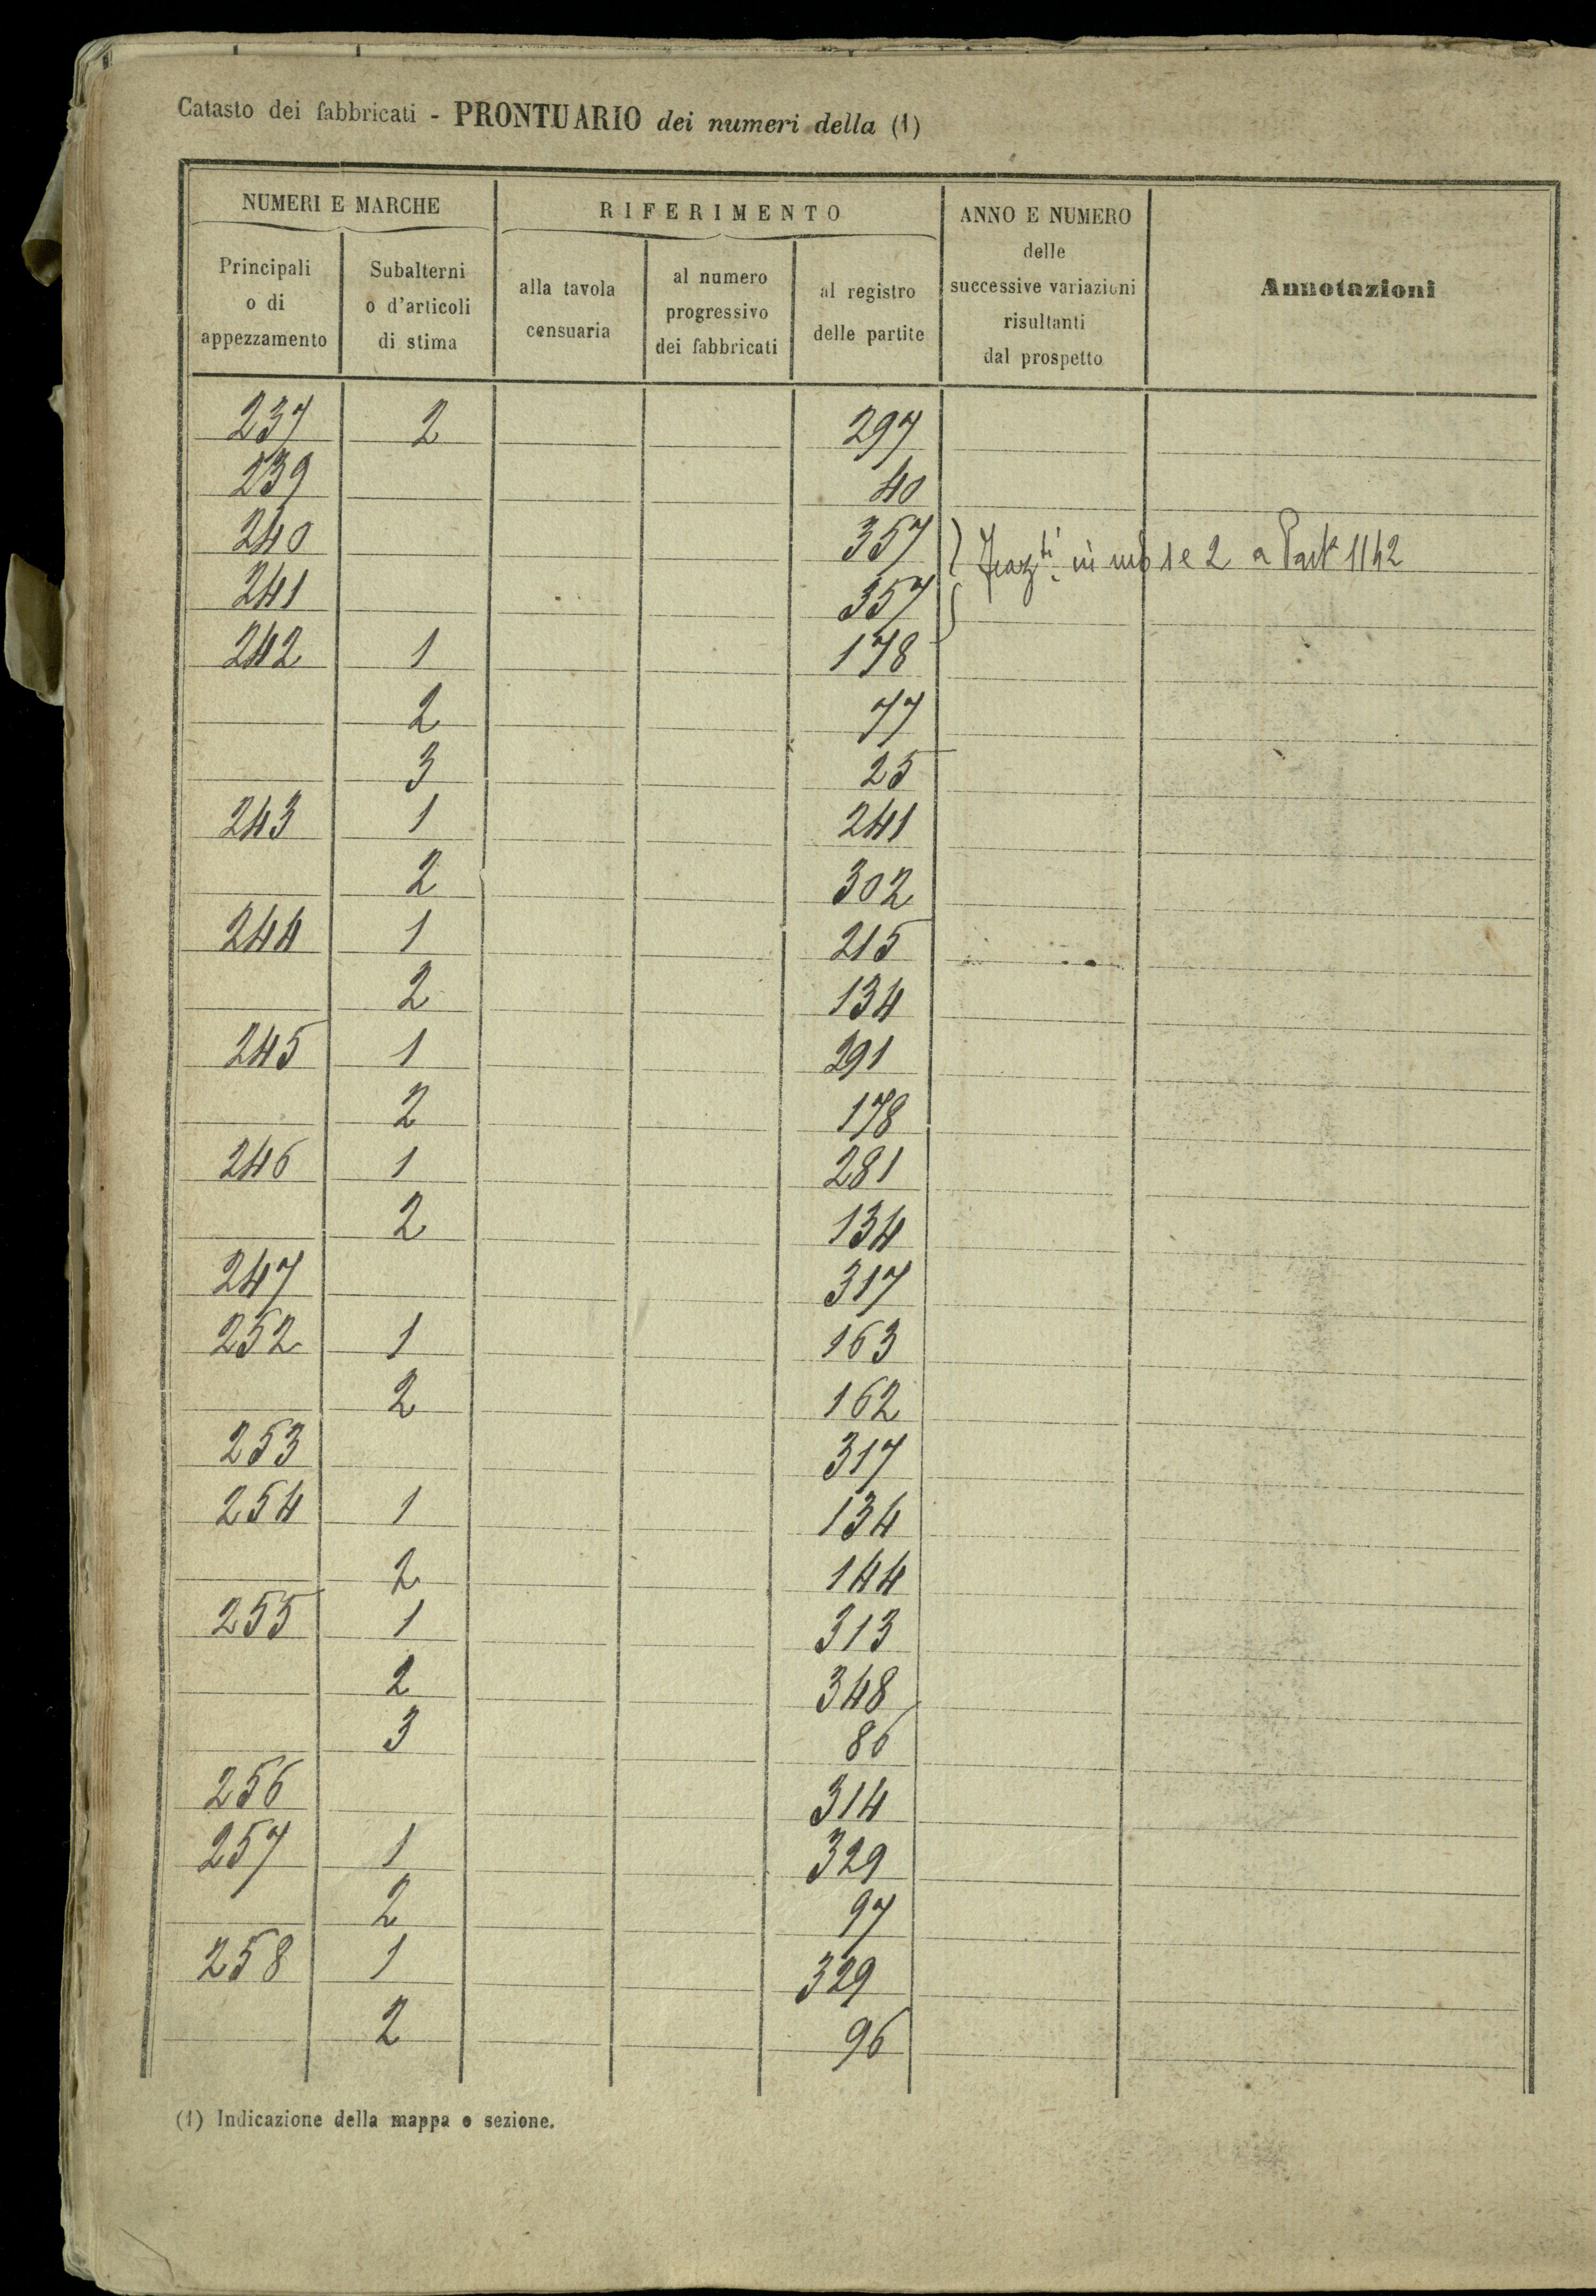 Catasto dei fabbricati - PRONTUARIO dei numeri della (1)
NUMERI E MARCHE
RIFERIMENTO
ANNO E NUMERO
delle
successive variazioni
risultanti
dal prospetto
Annotazioni
Principali
o di
appezzamento
Subalterni
o d'articoli
di stima
alla tavola
censuaria
al numero
progressivo
dei fabbricati
al registro
delle partite
237 2 297
239 40
240 357 in 1 e 2 a Part 1142
241 357
242 1 178
2 77
3 25
243 1 241
2 302
244 1 215
2 134
245 1 291
2 178
246 1 281
2 134
247 317
252 1 163
2 162
253 317
254 1 134
2 144
255 1 313
2 348
3 86
256 314
257 1 329
2 97
258 1 329
2 96
(1) Indicazione della mappa o sezione.